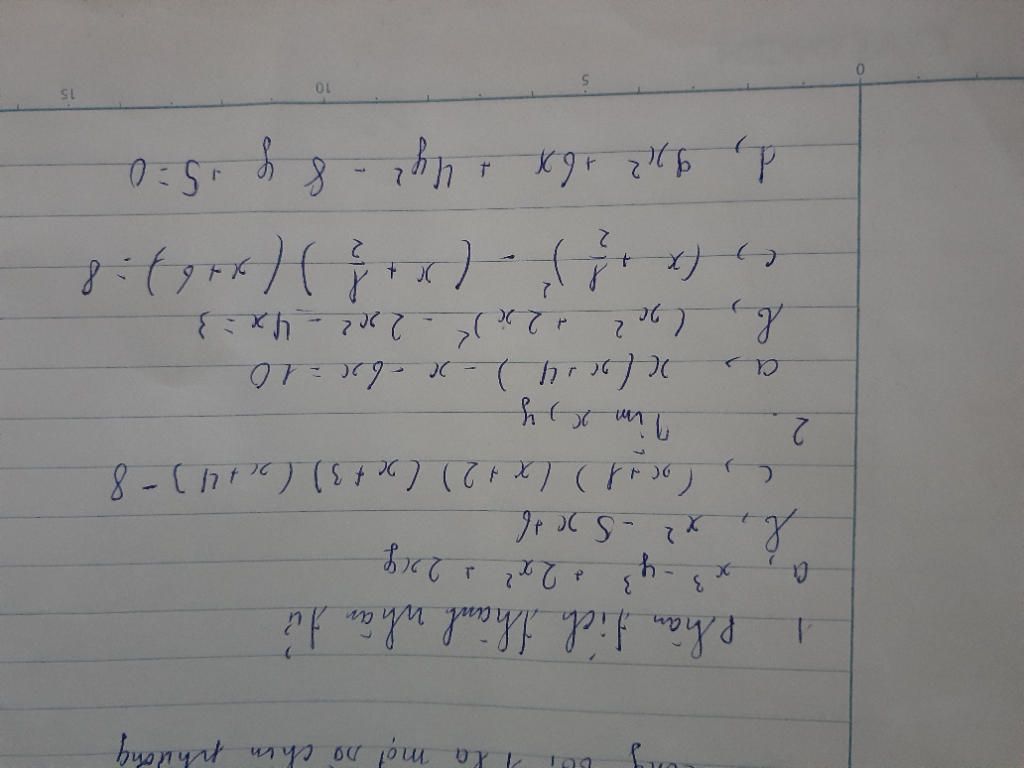 cộng với 1 là một số chính phương
1 Phân tích thành nhân tử
a, x³ - y³ + 2x² + 2xy
b, x² - 5x + 6
c, (x+1) (x+2) (x+3) (x+4) - 8
2. Tìm x, y
a, x(x+4) - x - 6x = 10
b, (x² + 2x)² - 2x² - 4x = 3
c, (x + 1/2)² - (x + 1/2) (x+6) = 8
d, 9x² + 6x + 4y² - 8y + 5 = 0
0 5 10 15